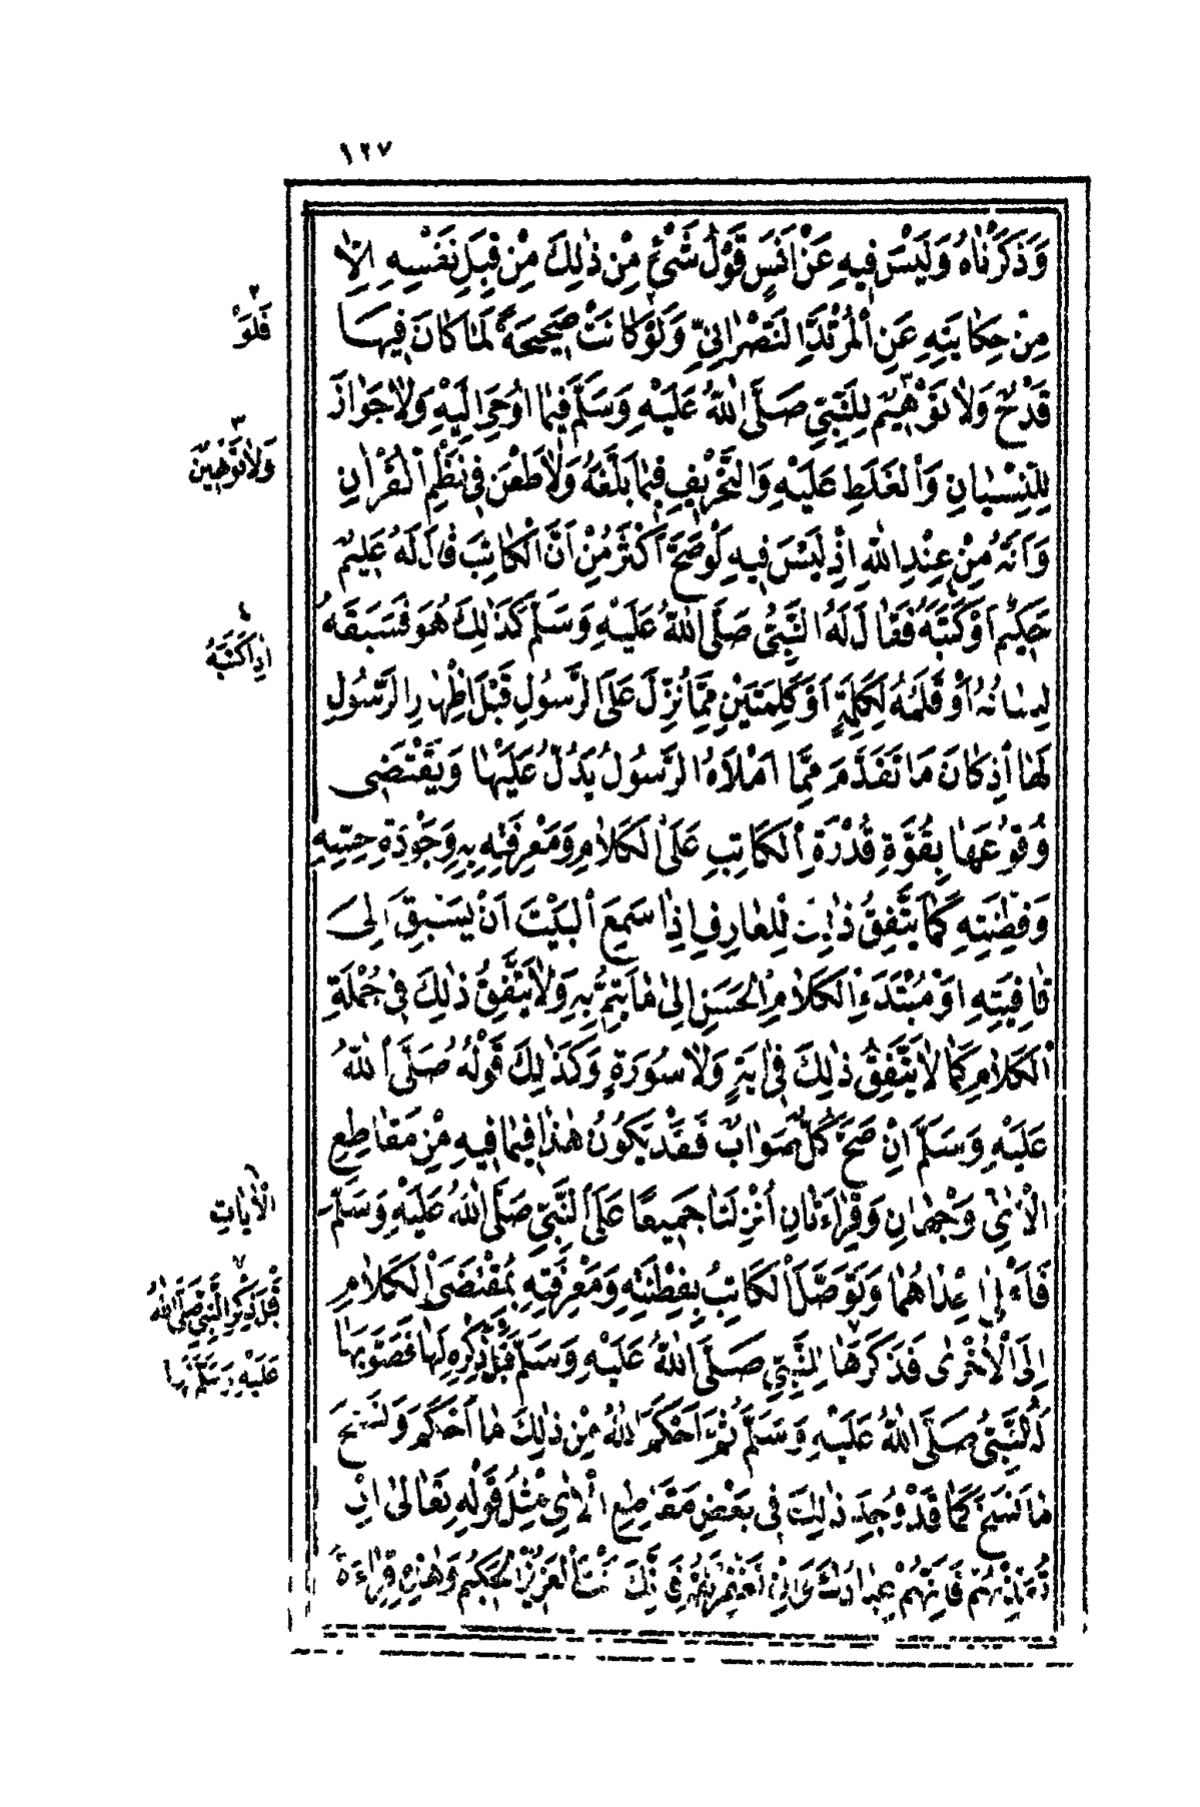 ١٢٧
وَذَكَرْنَاهُ وَلَيْسَ فِيهِ عَنْ اَنَسٍ قَوْلُ شَيْئٍ مِنْ ذٰلِكَ مِنْ قِبَلِ نَفْسِهِ اِلَّا
مِنْ حِكَايَتِهِ عَنِ الْمُرْتَدِّ النَّصْرَانِيِّ وَلَوْ كَانَتْ صَحِيحَةً لَمَا كَانَ فِيهَا
قَدْحٌ وَلَا تَوْهِيمٌ لِلنَّبِيِّ صَلَّى اللّٰهُ عَلَيْهِ وَسَلَّمَ فِيمَا اُوحِيَ اِلَيْهِ وَلَا جَوَازَ
لِلنِّسْيَانِ وَالْغَلَطِ عَلَيْهِ وَالتَّحْرِيفِ فِيمَا بَلَّغَهُ وَلَا طَعْنَ فِي نَظْمِ الْقُرْاٰنِ
وَاَنَّهُ مِنْ عِنْدِ اللّٰهِ اِذْ لَيْسَ فِيهِ لَوْ صَحَّ اَكْثَرُ مِنْ اَنَّ الْكَاتِبَ قَالَ لَهُ عَلِيمٌ
حَكِيمٌ اَوْ كَتَبَهُ فَقَالَ لَهُ النَّبِيُّ صَلَّى اللّٰهُ عَلَيْهِ وَسَلَّمَ كَذٰلِكَ هُوَ فَسَبَقَهُ
لِسَانُهُ اَوْ قَلَمُهُ لِكَلِمَةٍ اَوْ كَلِمَتَيْنِ مِمَّا نُزِّلَ عَلَى الرَّسُولِ قَبْلَ اِظْهَارِ الرَّسُولِ
لَهَا اِذْ كَانَ مَا تَقَدَّمَ مِمَّا اَمْلَاهُ الرَّسُولُ يَدُلُّ عَلَيْهَا وَيَقْتَضِي
وُقُوعَهَا بِقُوَّةِ قُدْرَةِ الْكَاتِبِ عَلَى الْكَلَامِ وَمَعْرِفَتِهِ بِهِ وَجَوْدَةِ حِسِّهِ
وَفِطْنَتِهِ كَمَا يَتَّفِقُ ذٰلِكَ لِلْعَارِفِ اِذَا سَمِعَ الْبَيْتَ اَنْ يَسْبِقَ اِلَى
قَافِيَتِهِ اَوْ مُبْتَدَءِ الْكَلَامِ الْحَسَنِ اِلَى مَا يَتِمُّ بِهِ وَلَا يَتَّفِقُ ذٰلِكَ فِي جُمْلَةِ
الْكَلَامِ كَمَا لَا يَتَّفِقُ ذٰلِكَ فِي اٰيَةٍ وَلَا سُورَةٍ وَكَذٰلِكَ قَوْلُهُ صَلَّى اللّٰهُ
عَلَيْهِ وَسَلَّمَ اِنْ صَحَّ كُلٌّ صَوَابٌ فَقَدْ يَكُونُ هٰذَا فِيمَا فِيهِ مِنْ مَقَاطِعِ
الْاٰيِ وَجْهَانِ وَقِرَاءَتَانِ اُنْزِلَتَا جَمِيعًا عَلَى النَّبِيِّ صَلَّى اللّٰهُ عَلَيْهِ وَسَلَّمَ
فَاَمْلَى اِحْدَاهُمَا وَتَوَصَّلَ الْكَاتِبُ بِفِطْنَتِهِ وَمَعْرِفَتِهِ بِمُقْتَضَى الْكَلَامِ
اِلَى الْاُخْرٰى فَذَكَرَهَا لِلنَّبِيِّ صَلَّى اللّٰهُ عَلَيْهِ وَسَلَّمَ قَبْلَ ذِكْرِهِ لَهَا فَصَوَّبَهَا
لَهُ النَّبِيُّ صَلَّى اللّٰهُ عَلَيْهِ وَسَلَّمَ ثُمَّ اَحْكَمَ اللّٰهُ مِنْ ذٰلِكَ مَا اَحْكَمَ وَنَسَخَ
مَا نَسَخَ كَمَا قَدْ وُجِدَ ذٰلِكَ فِي بَعْضِ مَقَاطِعِ الْاٰيِ مِثْلُ قَوْلِهِ تَعَالٰى اِنْ
تُعَذِّبْهُمْ فَاِنَّهُمْ عِبَادُكَ وَاِنْ تَغْفِرْ لَهُمْ فَاِنَّكَ اَنْتَ الْعَزِيزُ الْحَكِيمُ وَهٰذِهِ قِرَاءَةُ
٢
فَلَوْ
٣
وَلَا تَوْهِينَ
٤
اِذَا كَتَبَهُ
٦
الْاٰيَاتِ
٧
قَبْلَ ذِكْرِ النَّبِيِّ صَلَّى اللّٰهُ
عَلَيْهِ وَسَلَّمَ لَهَا